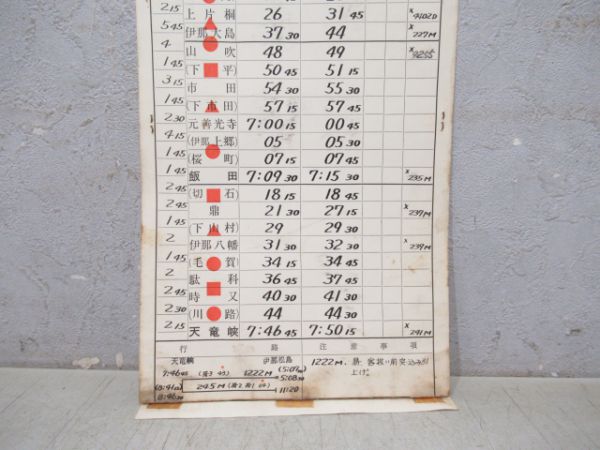 2 15 上片桐 26 31 45 × 4102D
5 45 伊那大島 37 30 44 × 227M
4 山吹 48 49
1 45 (下平) 50 45 51 15
3 15 市田 54 30 55 30
1 45 (下市田) 57 45
2 30 元善光寺 7:00 15 00 45
4 15 (伊那上郷) 05 05 30
1 45 (桜町) 07 15 07 45
1 45 飯田 7:09 30 7:15 30 × 235M
2 45 (切石) 18 15 18 45
2 45 鼎 21 30 27 15 × 237M
1 45 (下山村) 29 29 30
2 伊那八幡 31 30 32 30 × 239M
1 45 (毛賀) 34 15 34 45
2 駄科 36 45 37 45
2 45 時又 40 30 41 30
2 30 (川路) 44 44 30
2 15 天竜峡 7:46 45 7:50 15 × 241M
行路 注意事項
天竜峡 伊那松島
7:46 45 1222M (5:07) 5:08 30
245M 11:20
1222M.
上げ